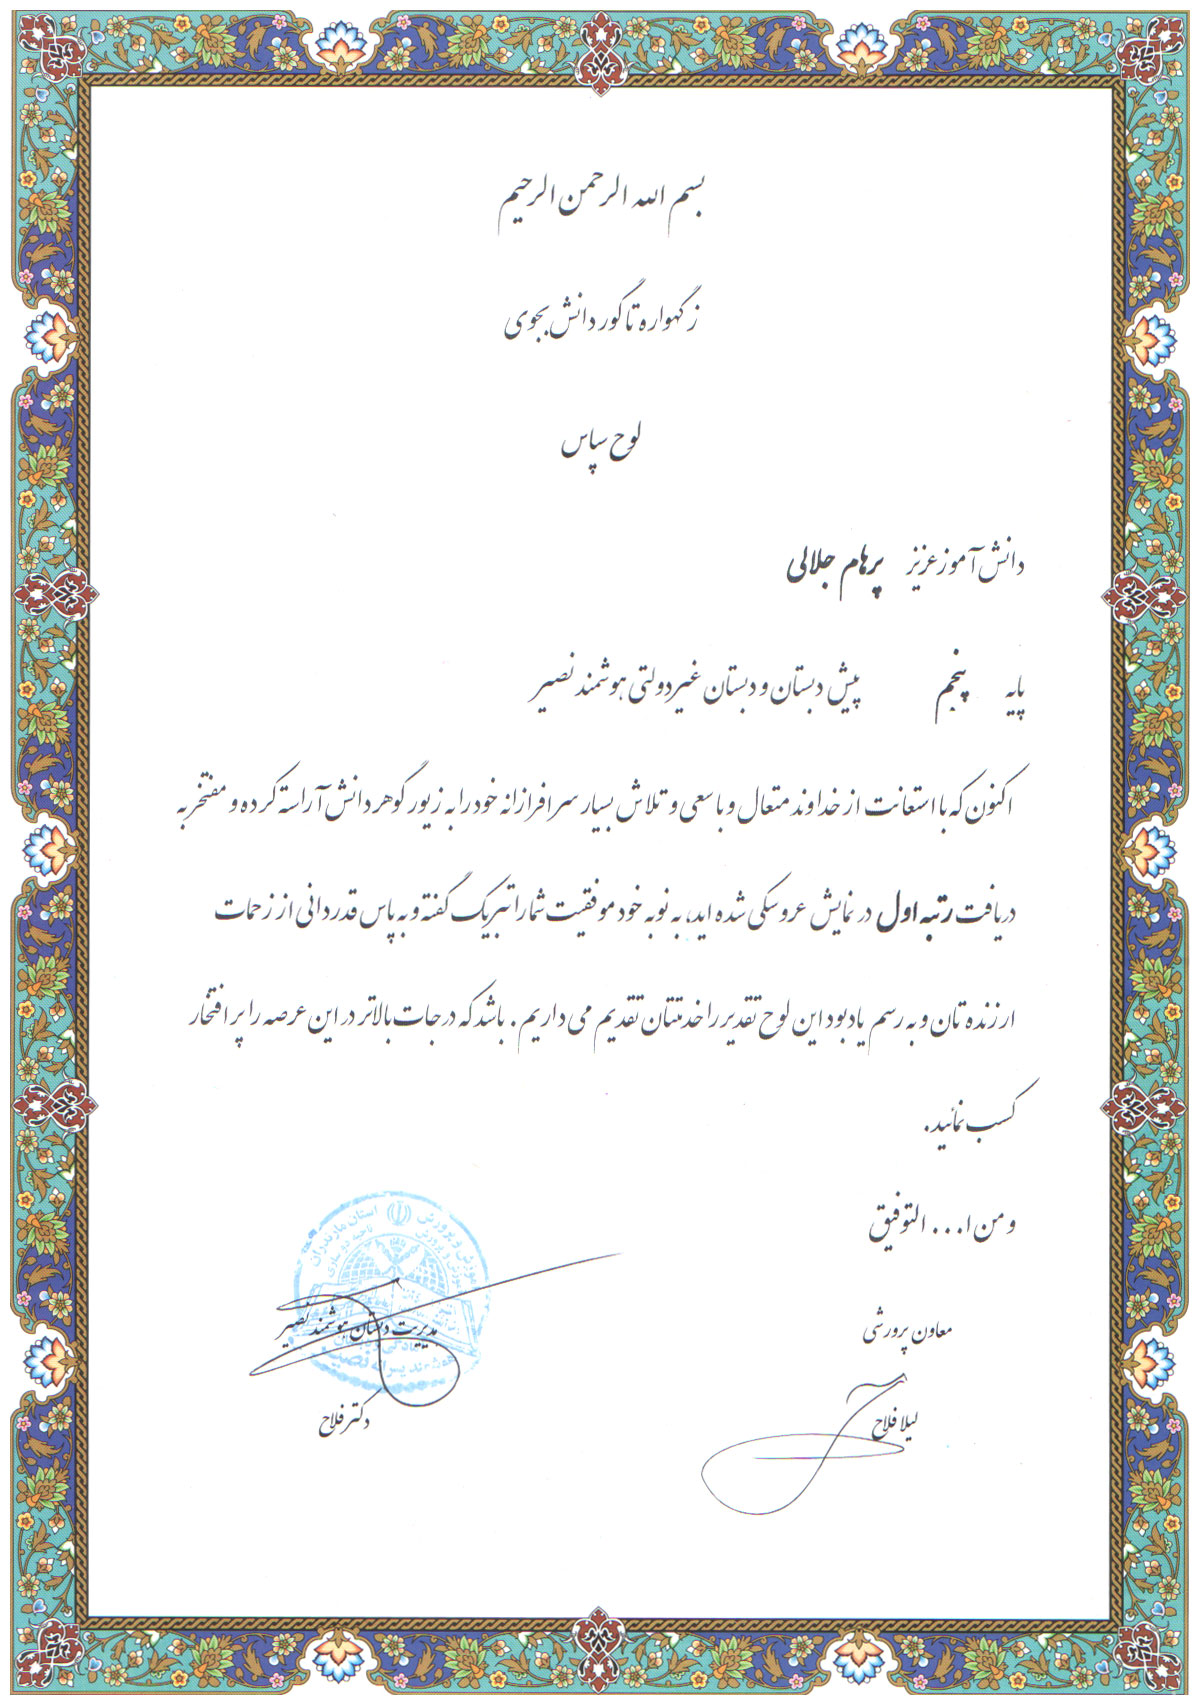 بسم الله الرحمن الرحیم
ز گهواره تا گور دانش بجوی
لوح سپاس
دانش آموز عزیز پرهام جلالی
پایه پنجم پیش دبستان و دبستان غیردولتی هوشمند نصیر
اکنون که با استعانت از خداوند متعال و با سعی و تلاش بسیار سرافرازانه خود را به زیور گوهر دانش آراسته کرده و مفتخر به
دریافت رتبه اول در نمایش عروسکی شده اید، به نوبه خود موفقیت شما را تبریک گفته و به پاس قدردانی از زحمات
ارزنده تان و به رسم یادبود این لوح تقدیر را خدمتتان تقدیم می داریم. باشد که درجات بالاتر در این عرصه را پر افتخار
کسب نمائید.
و من ا... التوفیق
معاون پرورشی
لیلا فلاح
استان مازندران
مدیریت دبستان هوشمند نصیر
دکتر فلاح